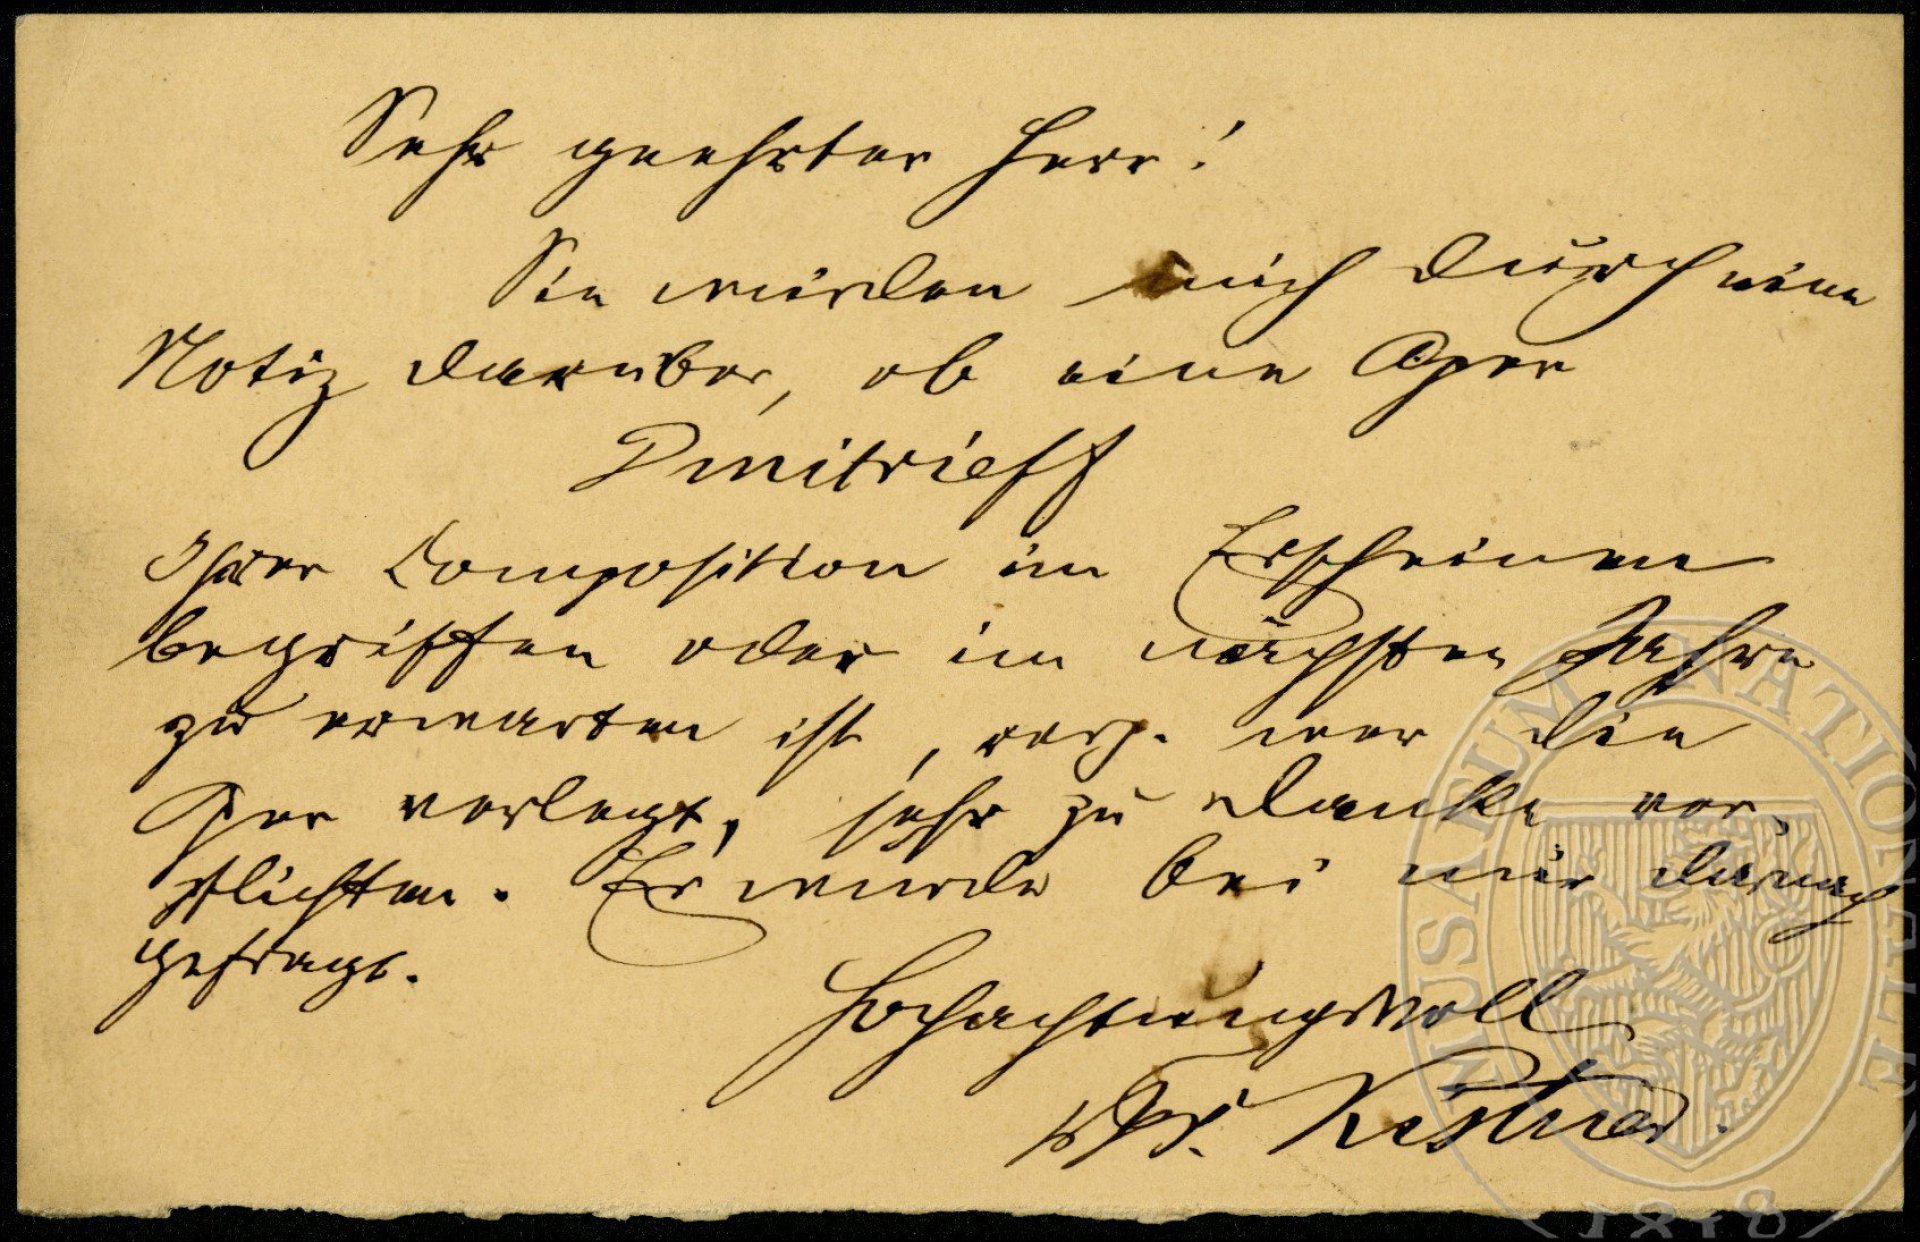 Sehr geehrter Herr!
Sie würden mich durch eine
Notiz darüber, ob eine Oper
Dmitrieff
Ihrer Composition im Erscheinen
begriffen oder im nächsten Jahre
zu erwarten ist, resp. wer die
Oper verlegt, sehr zu Danke ver-
pflichten. Es wurde bei mir danach
gefragt.
Hochachtungsvoll
Fr. Kistner.
MUSAEUM NATIONALE
1818